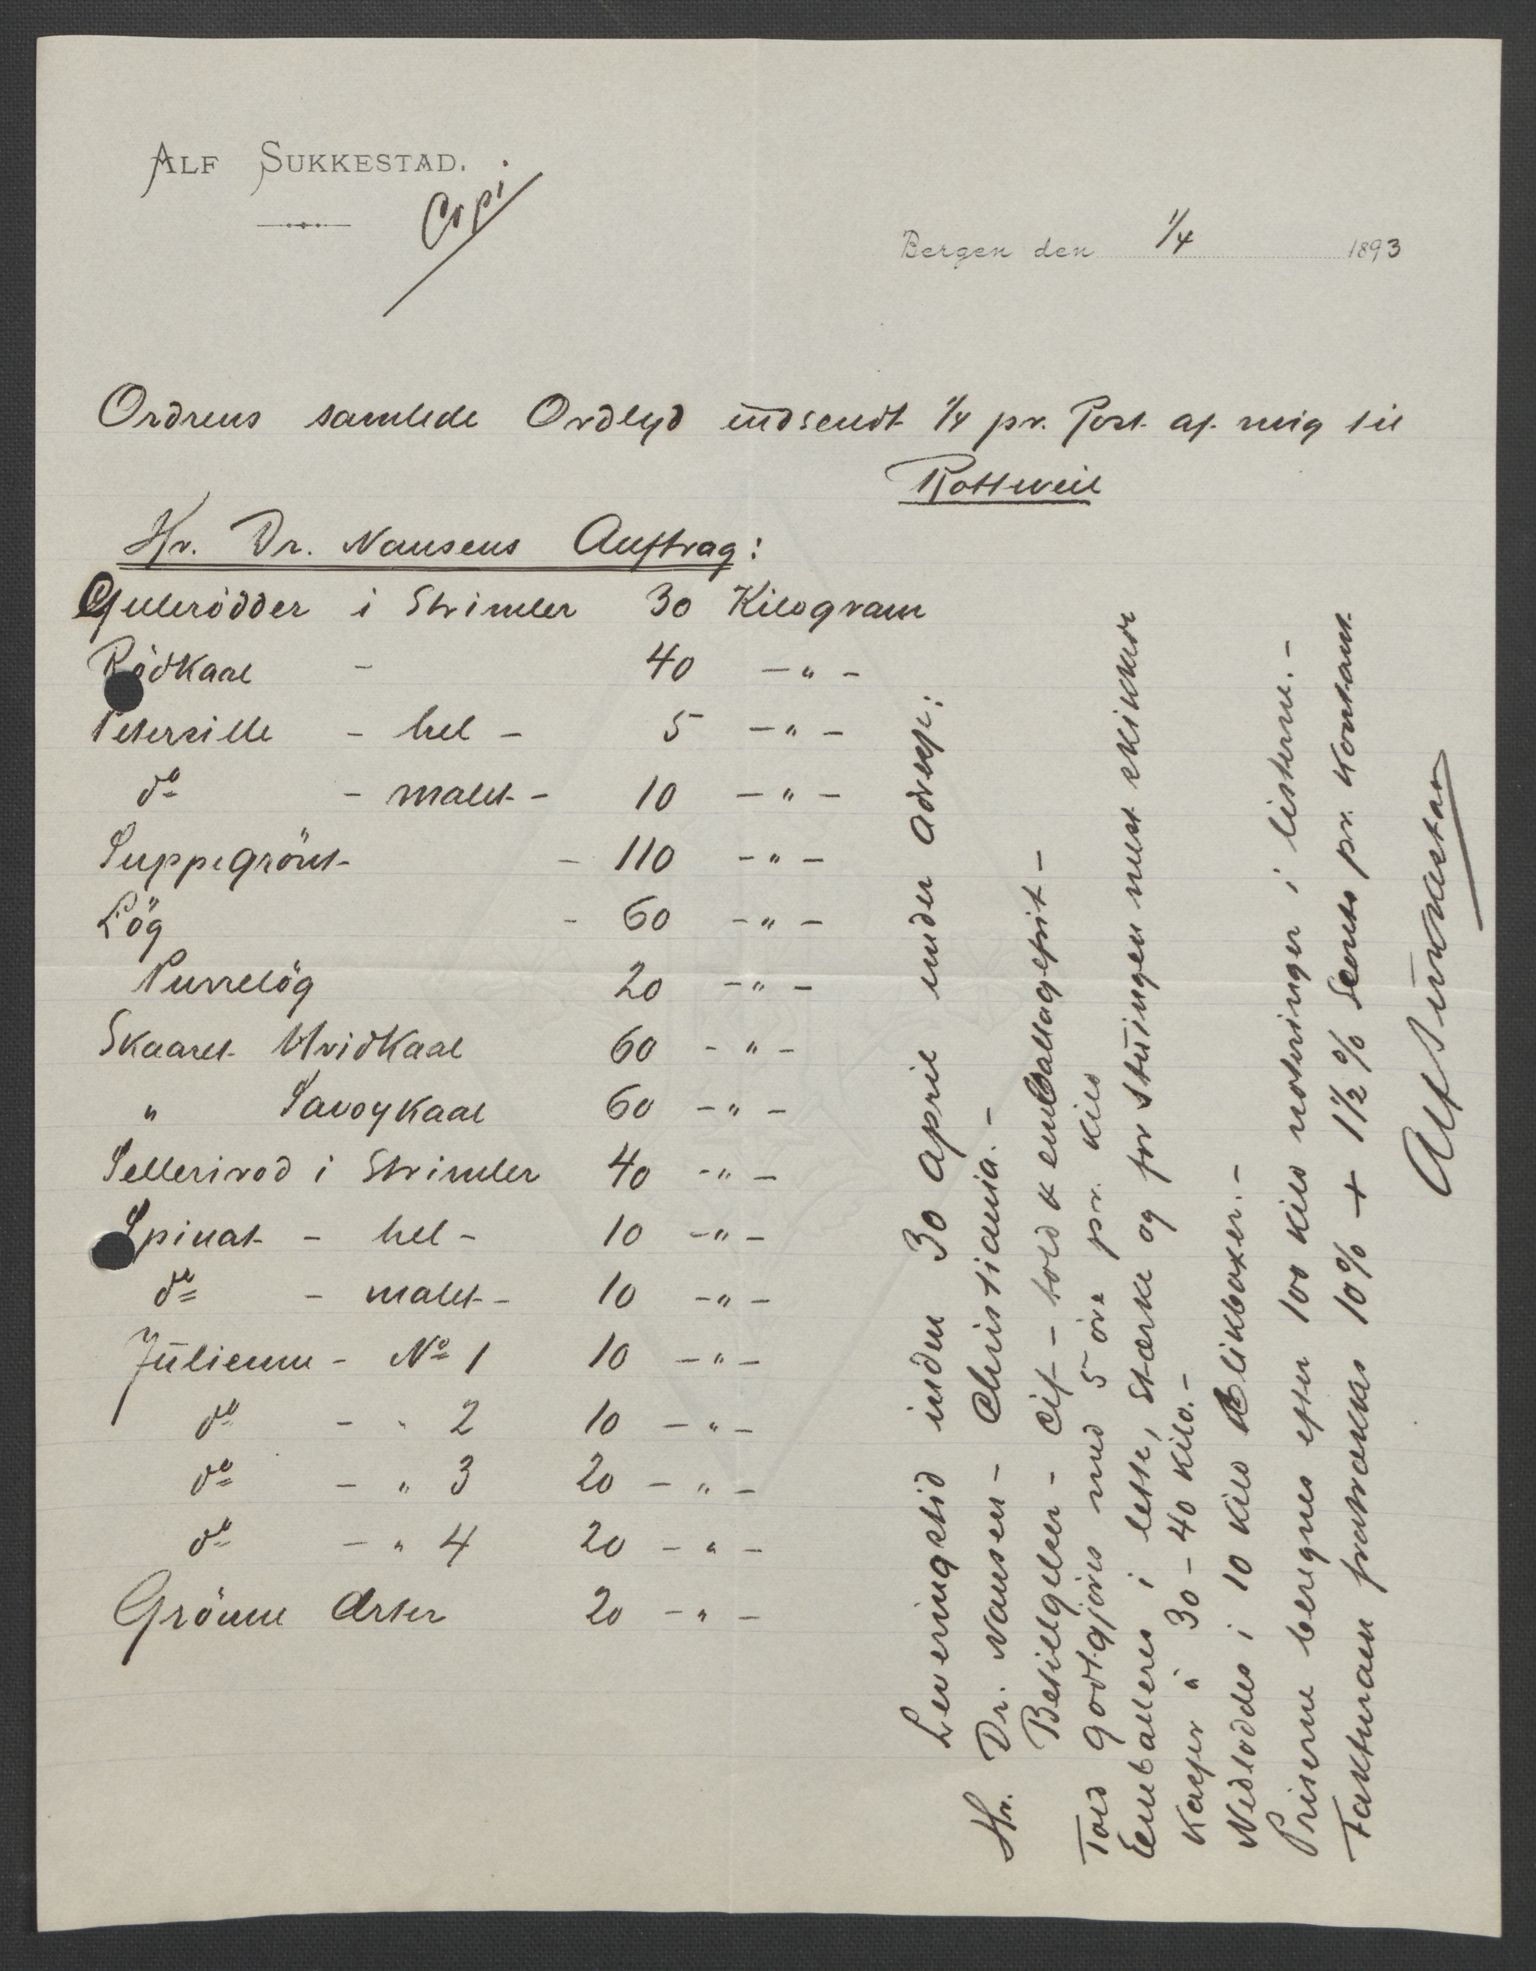 ALF SUKKESTAD.
Copi
Bergen den 1/4 1893
Ordrens samlede Ordlyd indsendt 1/4 pr. Post af mig til
Rottweil
Hr. Dr. Nansens Auftrag:
Gulerödder i Strimler 30 Kilogram
Rödkaal - 40 - " -
Petersille - hel - 5 - " -
do - malet - 10 - " -
Suppegrönt - 110 - " -
Lög - 60 - " -
Purrelög 20 - " -
Skaaret Hvidkaal 60 - " -
" Savoykaal 60 - " -
Sellerirod i Strimler 40 - " -
Spinat - hel - 10 - " -
do - malet - 10 - " -
Julienne - No 1 10 - " -
do - " 2 10 - " -
do - " 3 20 - " -
do - " 4 20 - " -
Grönne Ærter 20 - " -
Leveringstid inden 30 April under Adresse:
Hr. Dr. Nansen - Christiania. -
Betingelser - Cif - told & emballagefrit -
Told godtgjöres med 5 öre pr. kilo
Emballeres i lette, stærke og for stuingen mest skikkede
Kasser à 30 - 40 kilo. -
Nedloddes i 10 kilo Blikboxer. -
Priserne beregnes efter 100 kilo noteringer i listerne. -
Fakturaen fratrækkes 10% + 1 1/2 % Sconto pr. kontant
Alf Sukkestad